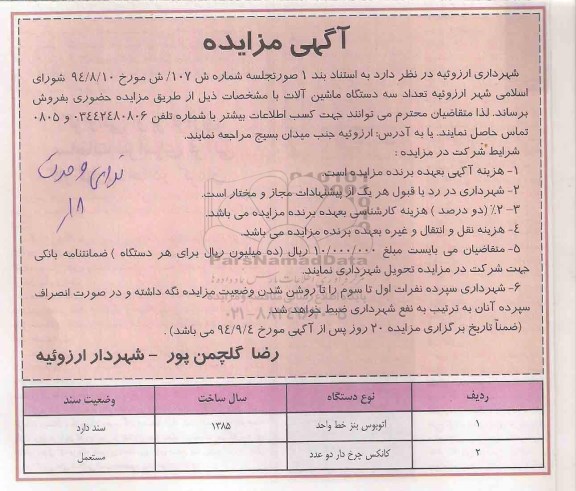 آگهی مزایده
شهرداری ارزوئیه در نظر دارد به استناد بند ۱ صورتجلسه شماره ش ۱۰۷/ ش مورخ ۹۴/۸/۱۰ شورای
اسلامی شهر ارزوئیه تعداد سه دستگاه ماشین آلات با مشخصات ذیل از طریق مزایده حضوری بفروش
برساند. لذا متقاضیان محترم می توانند جهت کسب اطلاعات بیشتر با شماره تلفن ۰۳۴۴۲۴۸۰۸۰۶ و ۰۸۰۵
تماس حاصل نمایند. یا به آدرس: ارزوئیه جنب میدان بسیج مراجعه نمایند.
شرایط شرکت در مزایده :
۱- هزینه آگهی بعهده برنده مزایده است.
۲- شهرداری در رد یا قبول هر یک از پیشنهادات مجاز و مختار است.
۳- ۲٪ (دو درصد ) هزینه کارشناسی بعهده برنده مزایده می باشد.
۴- هزینه نقل و انتقال و غیره بعهده برنده مزایده می باشد.
۵- متقاضیان می بایست مبلغ ۱۰/۰۰۰/۰۰۰ ریال (ده میلیون ریال برای هر دستگاه ) ضمانتنامه بانکی
جهت شرکت در مزایده تحویل شهرداری نمایند.
۶- شهرداری سپرده نفرات اول تا سوم را تا روشن شدن وضعیت مزایده نگه داشته و در صورت انصراف
سپرده آنان به ترتیب به نفع شهرداری ضبط خواهد شد.
(ضمناً تاریخ برگزاری مزایده ۲۰ روز پس از آگهی مورخ ۹۴/۹/۴ می باشد) .
رضا گلچمن پور - شهردار ارزوئیه
ردیف نوع دستگاه سال ساخت وضعیت سند
۱ اتوبوس بنز خط واحد ۱۳۸۵ سند دارد
۲ کانکس چرخ دار دو عدد مستعمل
ندای وحدت
۱۸
ParsNamadData